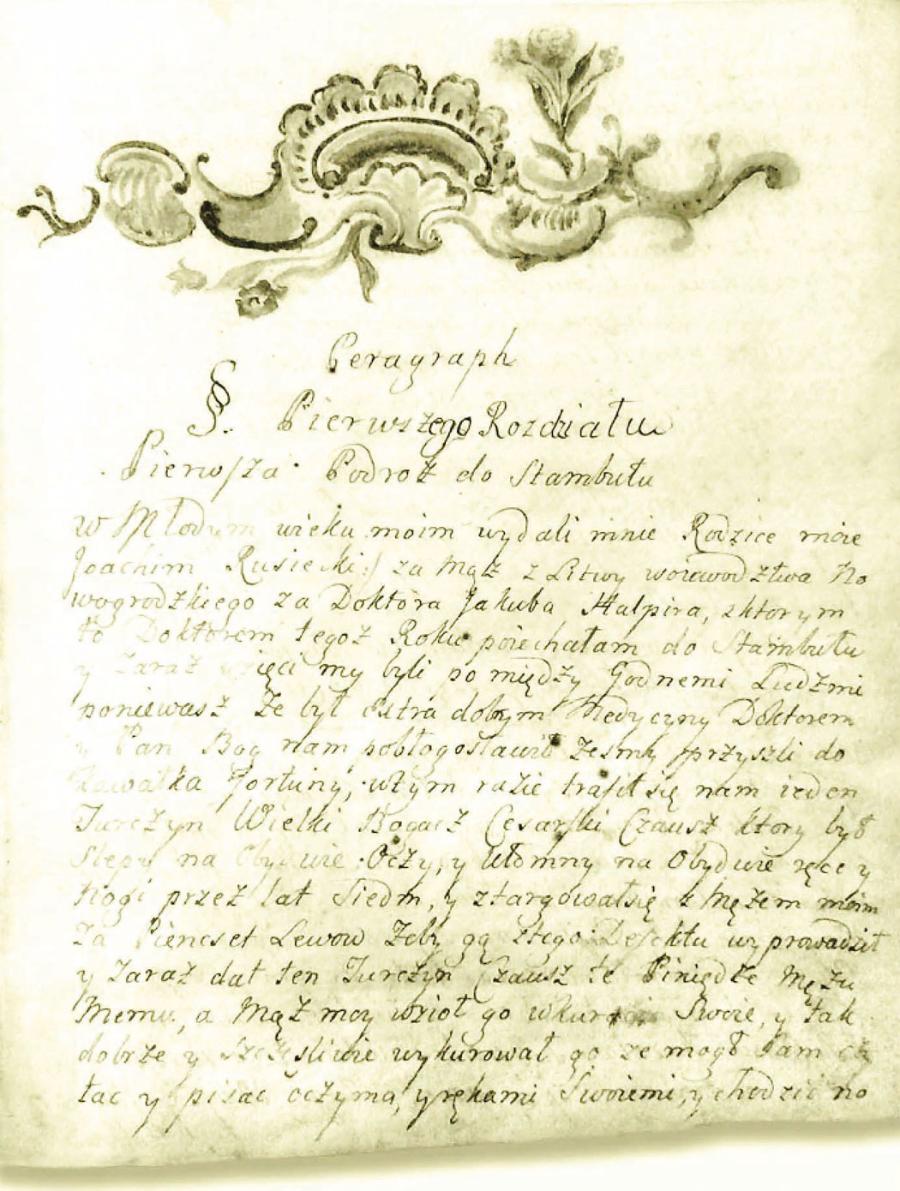 Peragraph
§. Pierwszego Rozdziału
Pierwsza Podroż do Stambułu
w Młodym wieku moim wydali mnie Rodzice moie
Joachim Rusiecki:/ za Mąż z Litwy woiewodztwa No
wogrodzkiego za Doktora Jakuba Halpira, zktorym
to Doktorem tegoż Roku poiechałam do Stambułu
y Zaraż wzięci my byli pomiędzy Godnemi Ludzmi
poniewasz że był extra dobrym Medycyny Doktorem
y Pan Bog nam pobłogosławił żeśmy przyszli do
kawałka fortuny, wtym razie trafił się nam ieden
Turczyn Wielki Bogacz Cesarski Czausz ktory był
Slepy na Obydwie Oczy, y Ułomny na Obydwie ręce y
Nogi przez lat Siedm, y ztargowałsię z Mężem moim
Za Piencset Lewow Żeby gą ztego Defektu wyprowadził
y Zaraż dał ten Turczyn Czausz te Piniędze Mężu
Memu, a Mąż moy wzioł go wkuracią Swoie, y tak
dobrze y Szczęśliwie wykurował go ze mogł Sam cz
tac y pisac oczyma, y rękami Swoiemi, y chodzić no